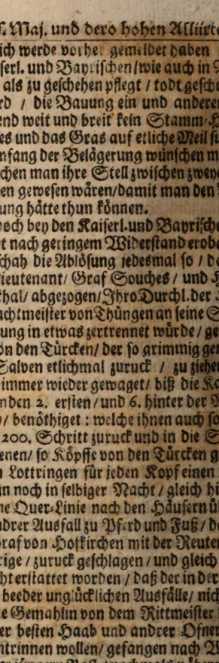 Maj. und dero hohen Alliirte
ich werde vorher gemeldet haben
serl. und Bayrischen / wie auch in
als zu geschehen pflegt / todt gescho
rd / die Bauung ein und andere
end weit und breit kein Stamm-H
es und das Gras auf etliche Meil
nfang der Belägerung wünschen m
chen man ihre Stell zwischen zwey
en gewesen wären / damit man den
ung hätte thun können.
och bey den Kaiserl. und Bayrische
t nach geringem Widerstand erob
schah die Ablösung jedesmal so / d
ieutenant / Graf Souches / und
thal / abgezogen / Ihro Durchl. der
achtmeister von Thüngen an seine S
ung in etwas zertrennet würde / ge
on den Türcken / der so grimmig ge
Salven etlichmal zuruck / zu ziehe
immer wieder gewaget / biß die K
nden 2. ersten / und 6. hinter der
) / benöthiget: welche ihnen auch so
200. Schritt zuruck und in die S
enen / so Köpffe von den Türcken g
Lottringen für jeden Kopf einen
un noch in selbiger Nacht / gleich hi
ne Quer-Linie nach den Häusern ü
ndrer Ausfall zu Pferd und Fuß / d
raf von Hofkirchen mit der Reuter
rige / zuruck geschlagen / und gleich
cht erstattet worden / daß der in der
beeder unglücklichen Ausfälle / nich
e Gemahlin von dem Rittmeister
er besten Haab und andrer
ntrinnen wollen / gefangen nach